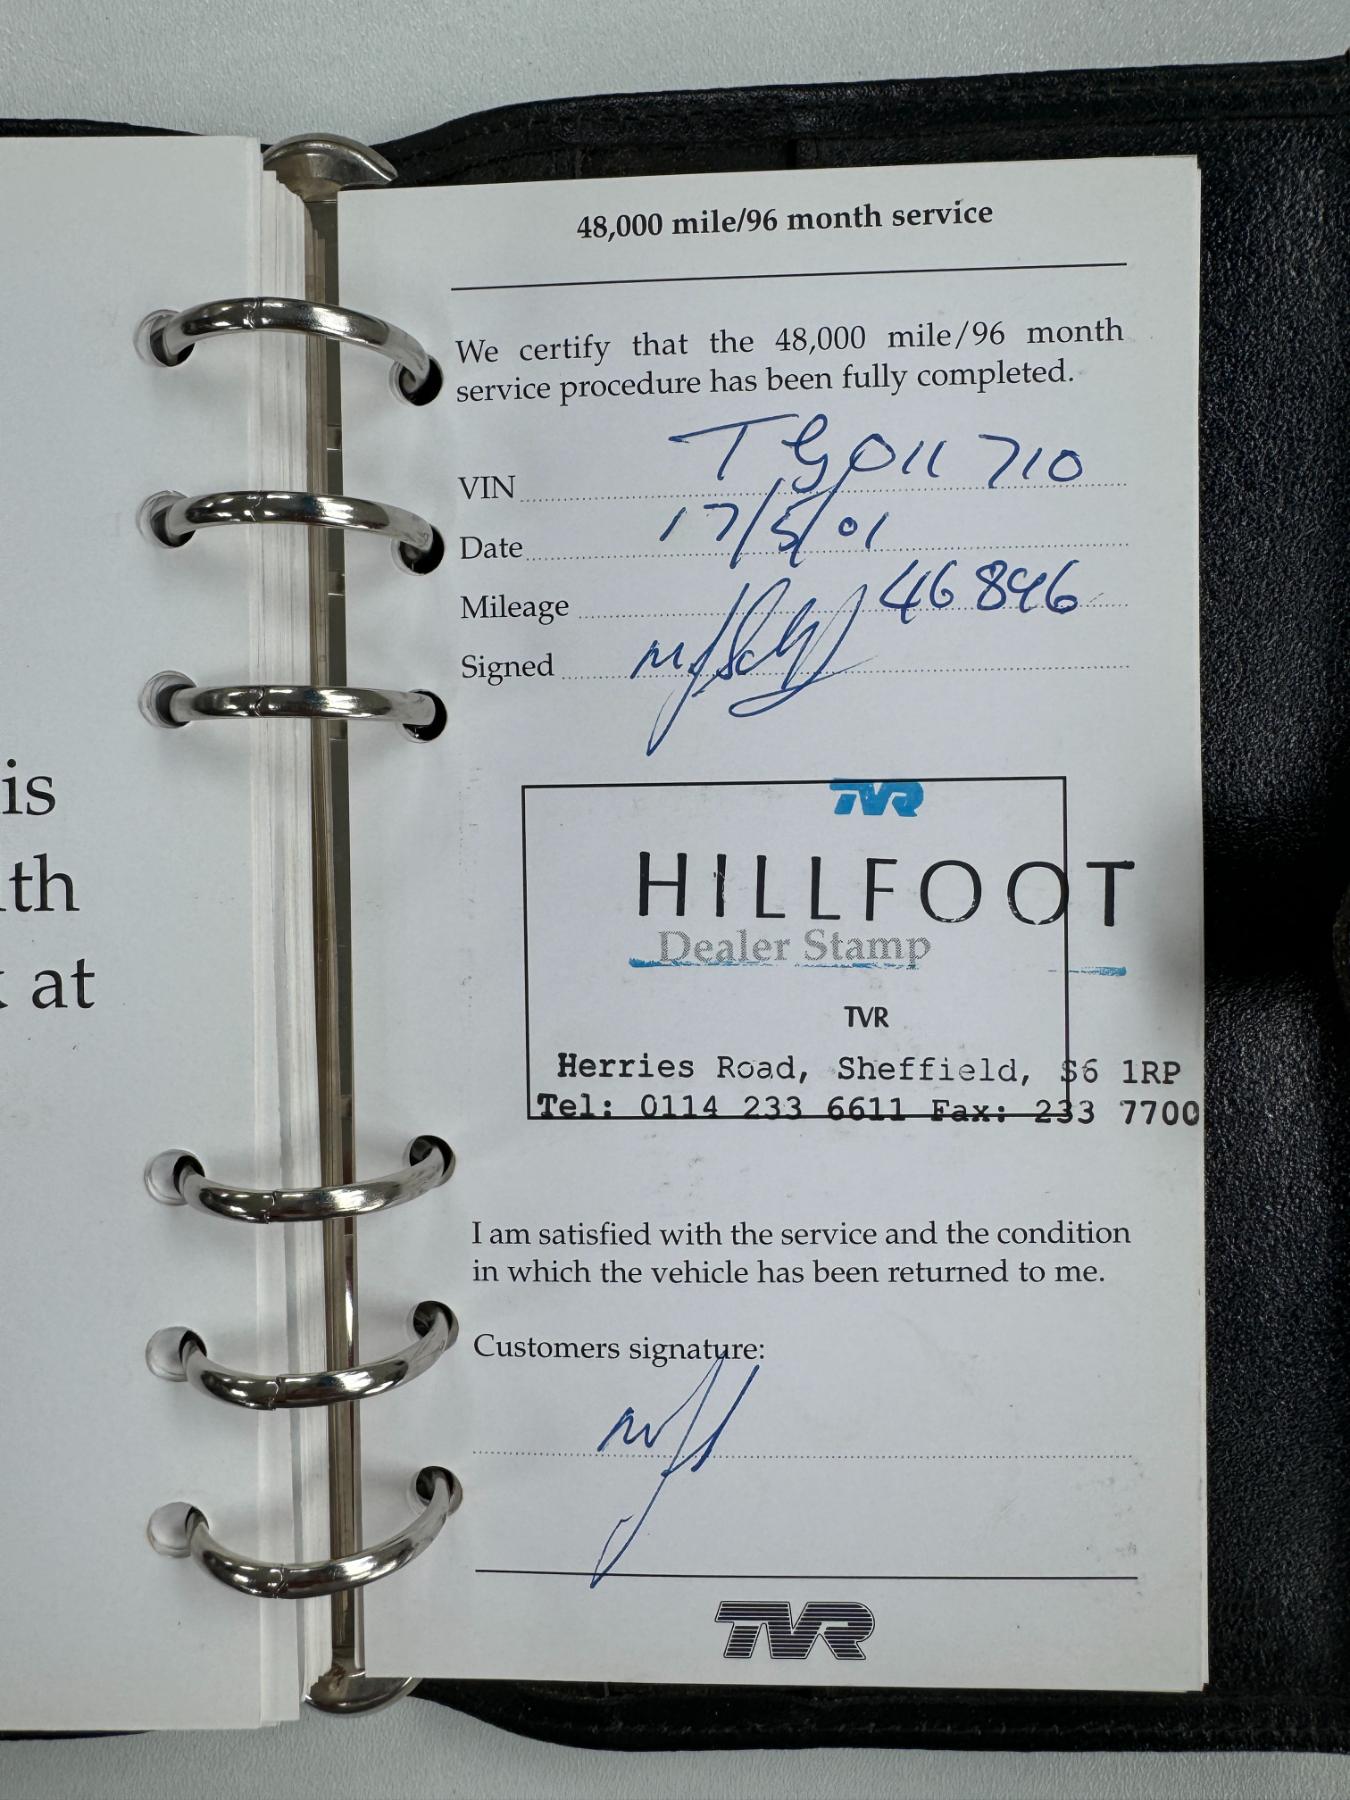 is
ith
at
48,000 mile/96 month service
We certify that the 48,000 mile/96 month
service procedure has been fully completed.
VIN TG011710
Date 17/5/01
Mileage 46896
Signed
TVR
HILLFOOT
Dealer Stamp
TVR
Herries Road, Sheffield, S6 1RP
Tel: 0114 233 6611 Fax: 233 7700
I am satisfied with the service and the condition
in which the vehicle has been returned to me.
Customers signature:
TVR